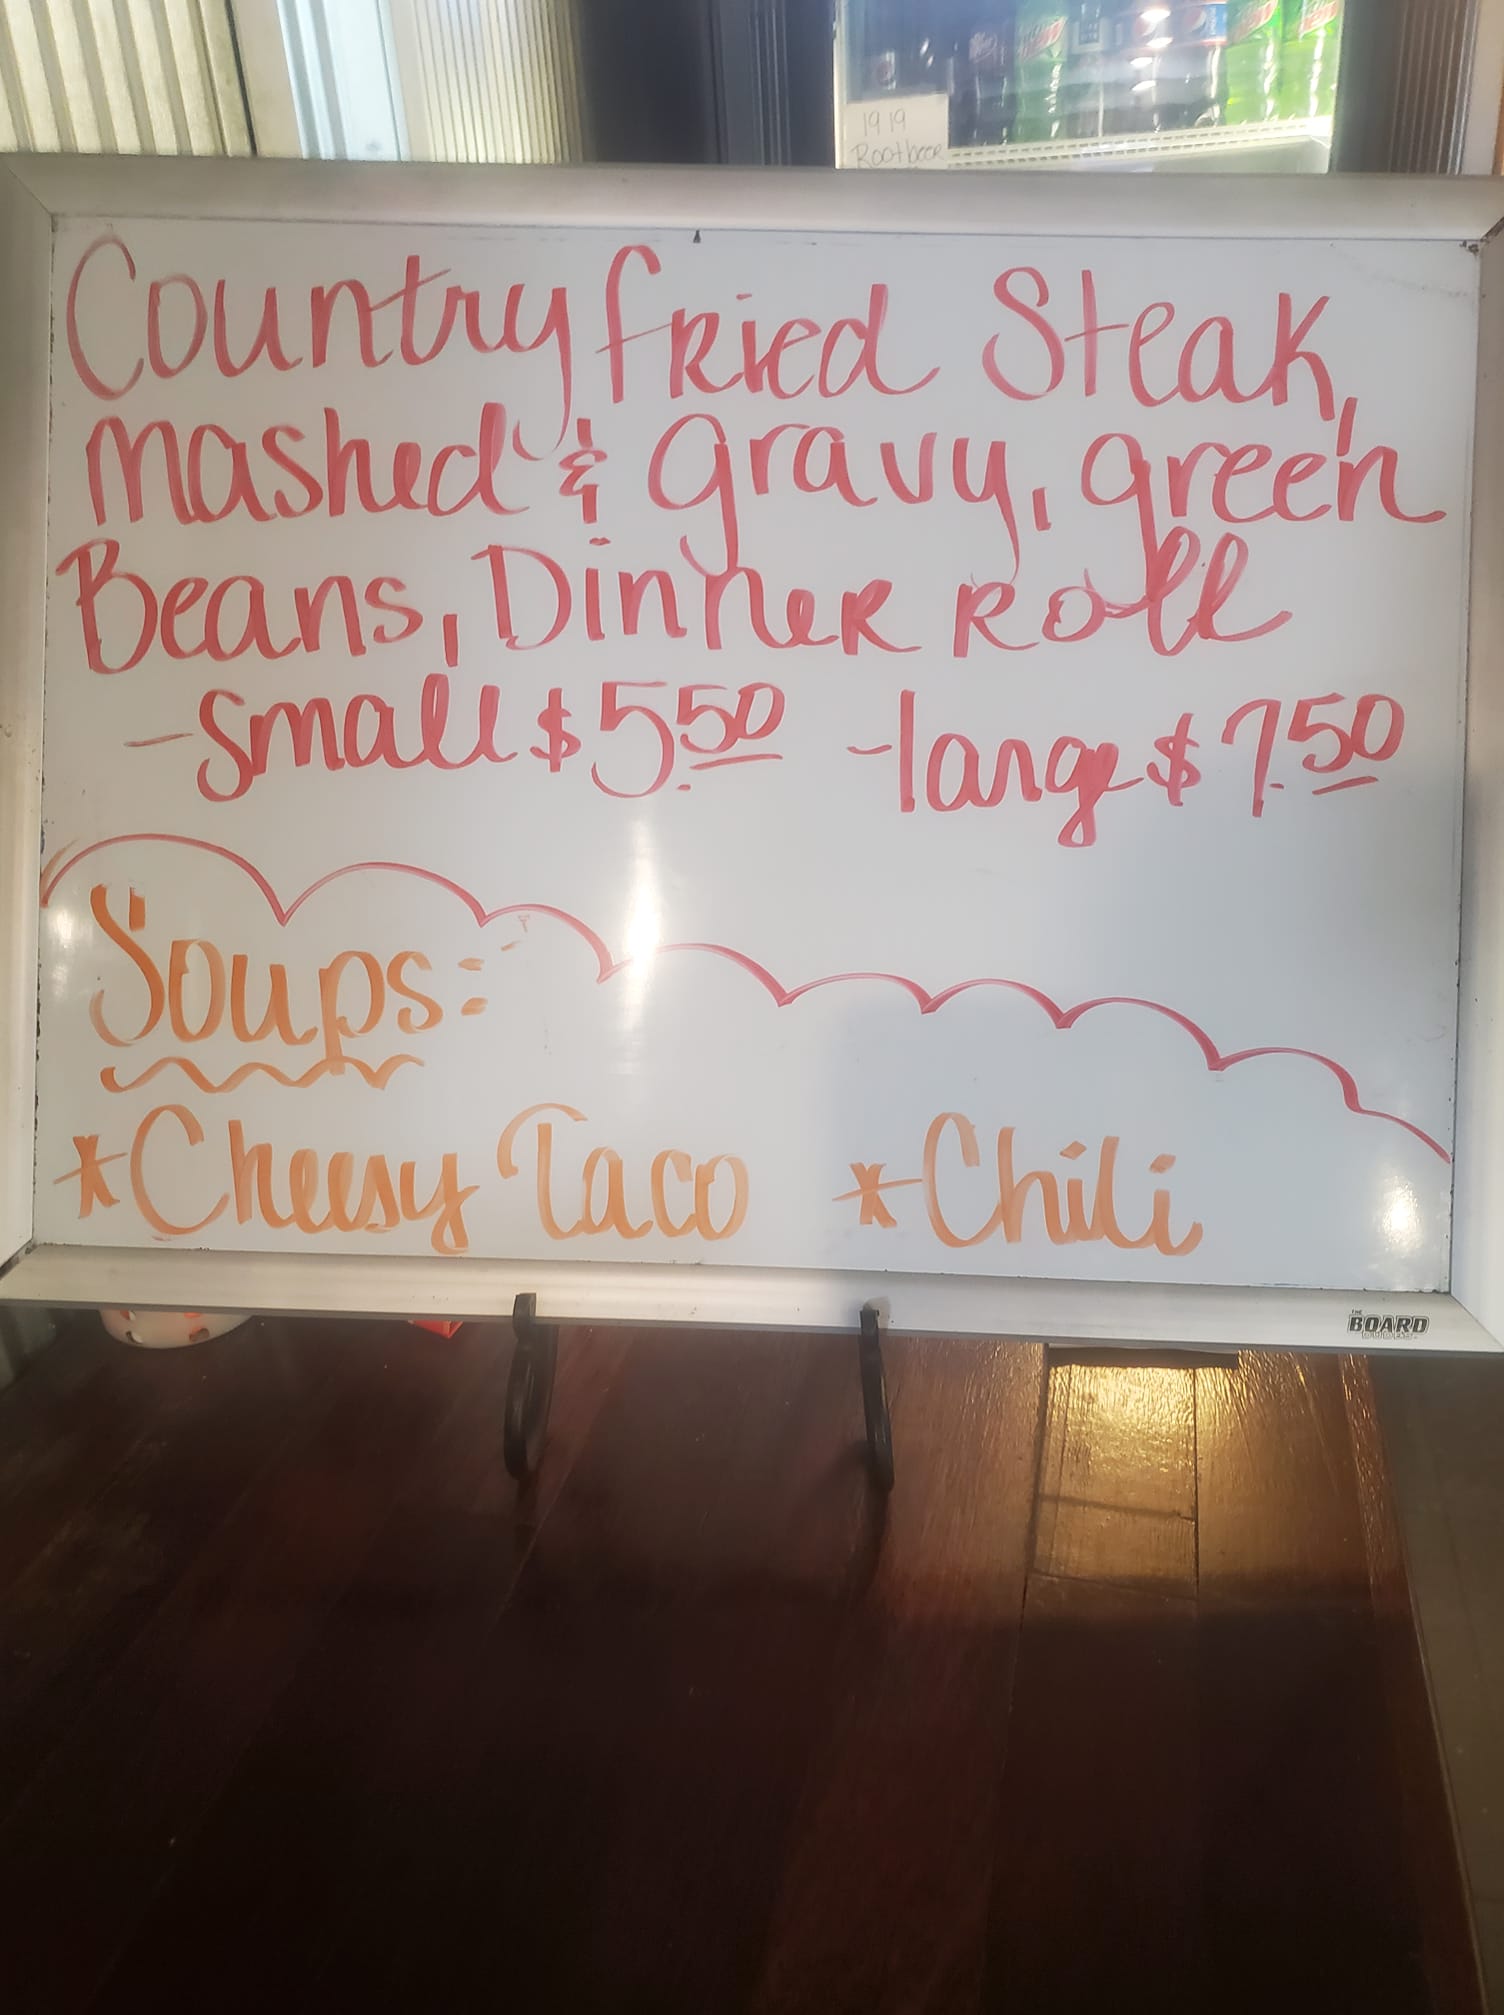 1919
Rootbeer
Country fried Steak,
mashed & gravy, green
Beans, Dinner Roll
-Small $5.50 -large $7.50
Soups:
*Cheesy Taco *Chili
THE
BOARD
DUDES